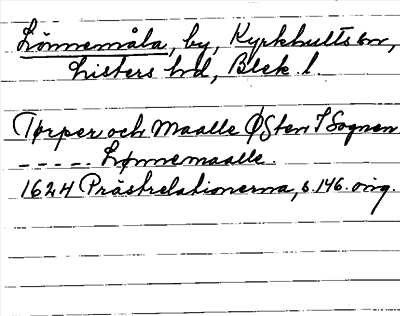 Lönnemåla, by, Kyrkhults sn,
Listers hd, Blek. l.
Torper och Maalle Østen I Sognen
- - - - - Lønnemaalle.
1624 Prästrelationerna, s. 146. orig.